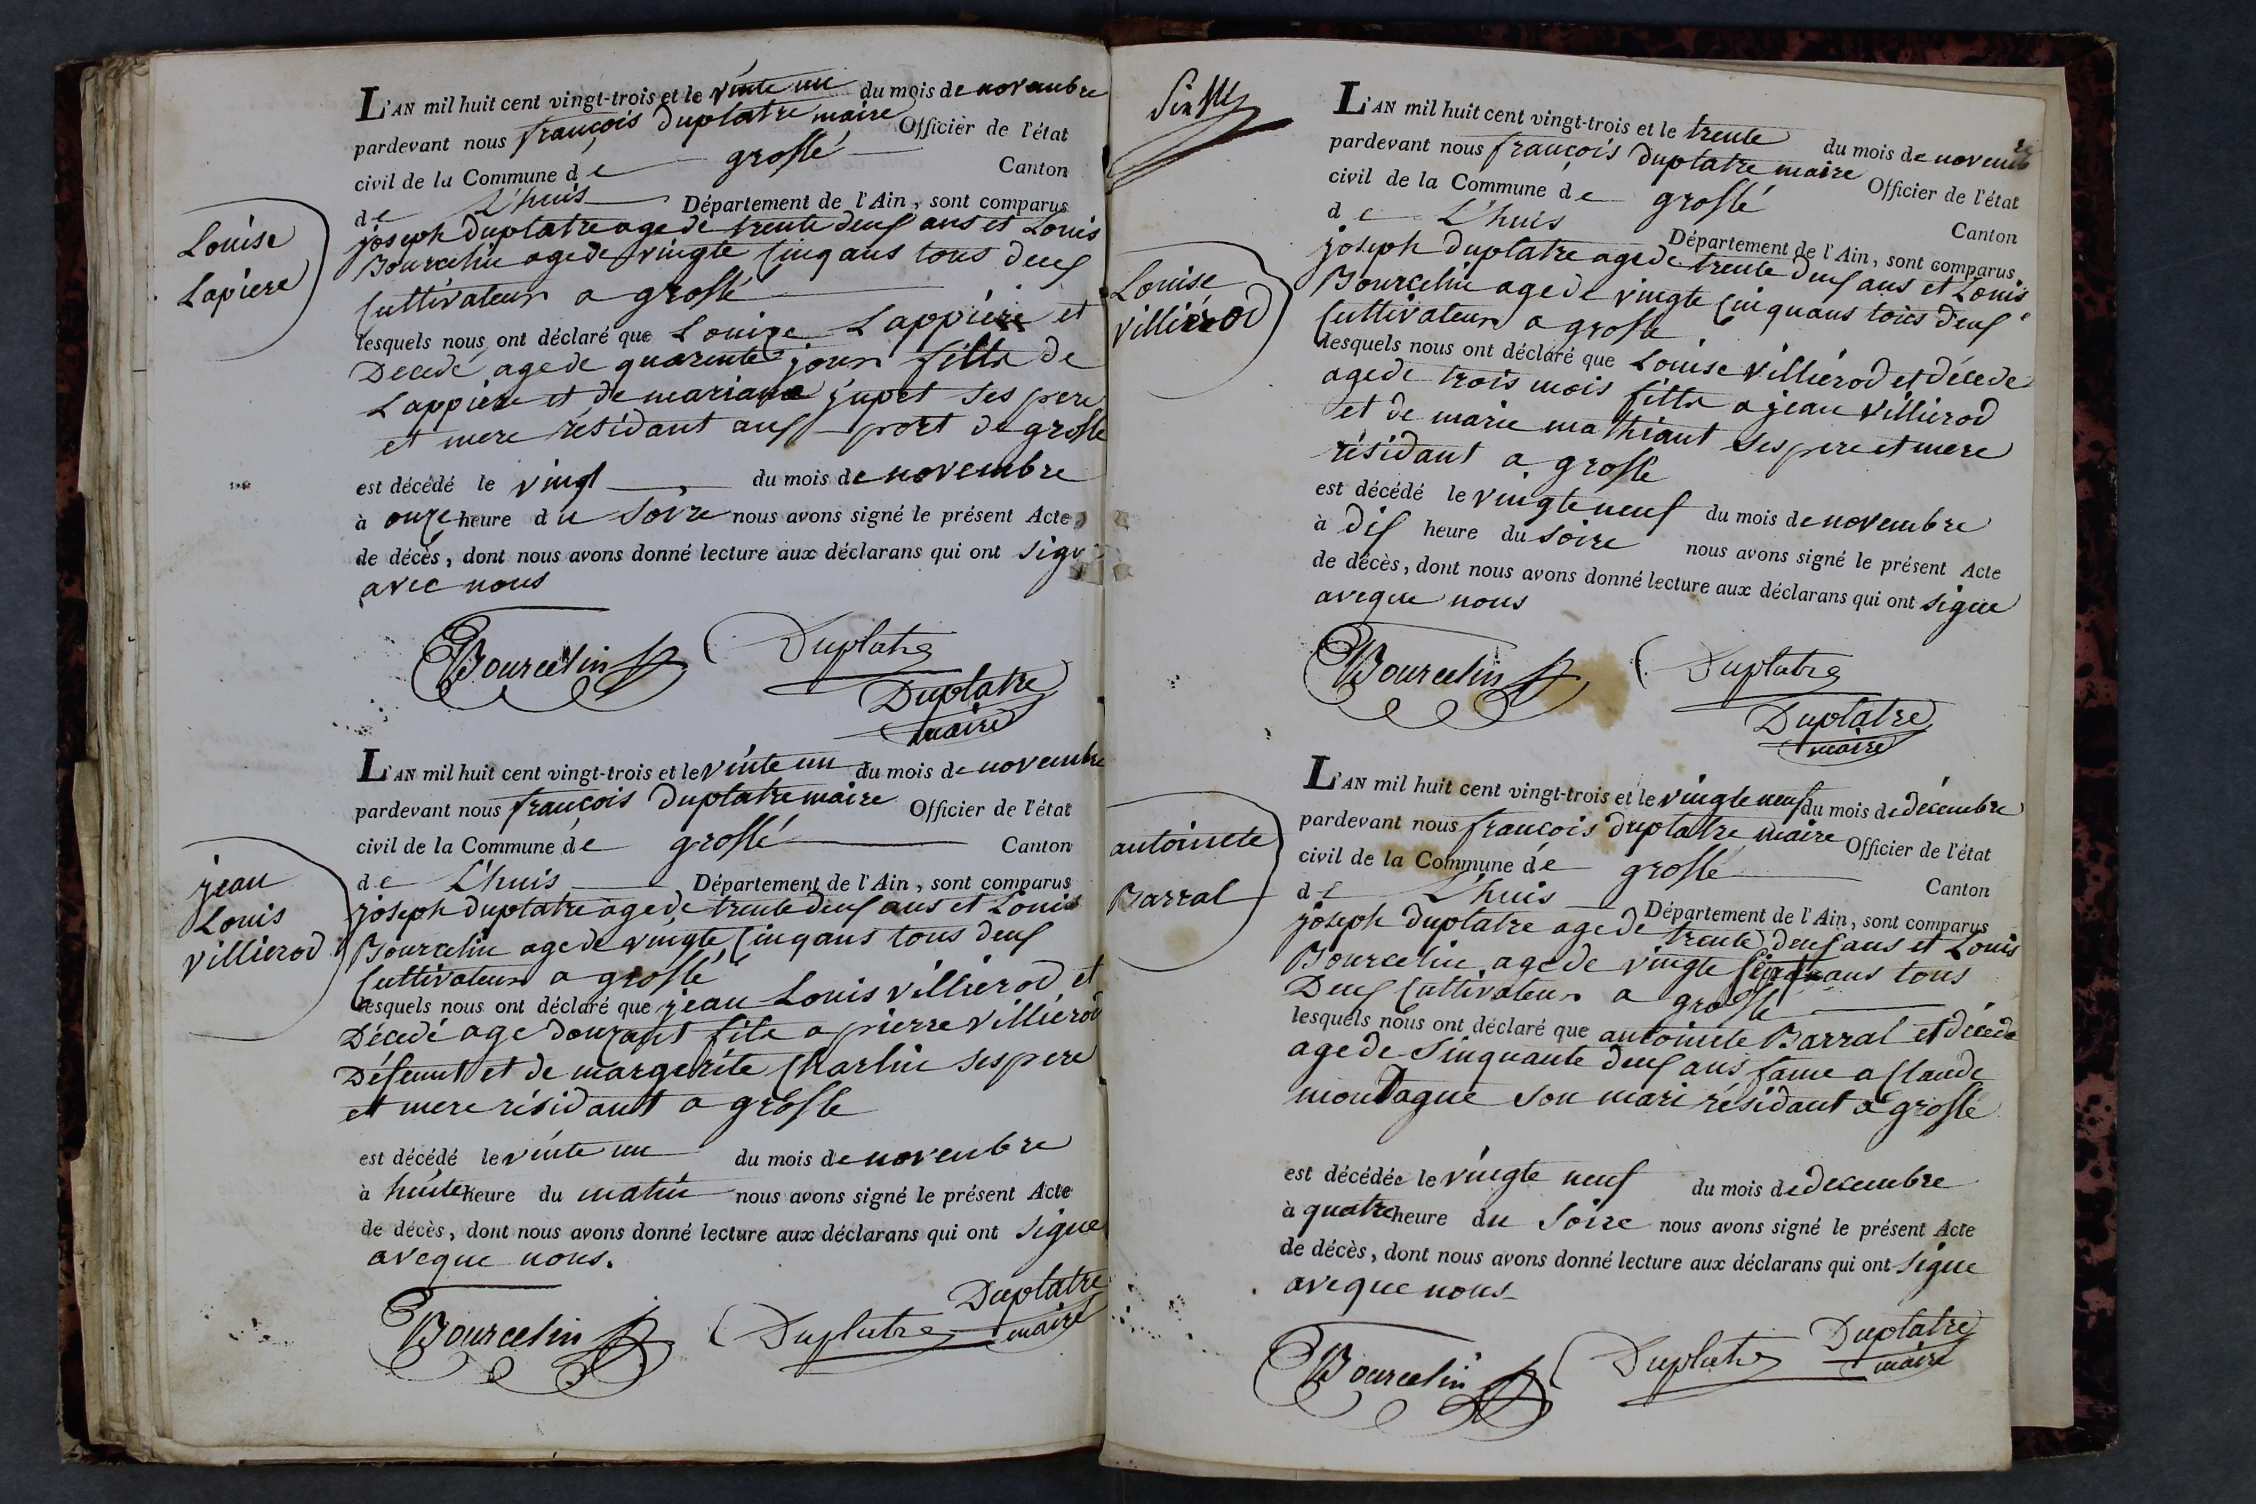 Louise
Lapiere
L'AN mil huit cent vingt-trois et le vinte un du mois de novembre
pardevant nous françois duplatre maire Officier de l'état
civil de la Commune de grosslé Canton
de L'huis Département de l'Ain, sont comparus
joseph duplatre age de trente deux ans et Louis
Bourcelin age de vingte Cinq ans tous deux
Cultivateur a grosslé
lesquels nous ont déclaré que Louise Lappiere et
Decedé age de quarente jour fille de
Lappiere et de mariane jupet ses pere
et mere résidant aux port de grossle
est décédé le vingt du mois de novembre
à onze heure du soire nous avons signé le présent Acte
de décès, dont nous avons donné lecture aux déclarans qui ont signé
avec nous
Bourcelin Duplatre
Duplatre
maire
jean
Louis
villierod
L'AN mil huit cent vingt-trois et le vinte un du mois de novembre
pardevant nous françois duplatre maire Officier de l'état
civil de la Commune de grosslé Canton
de L'huis Département de l'Ain, sont comparus
joseph duplatre age de trente deux ans et Louis
Bourcelin age de vingte Cinq ans tous deux
Cultivateur a grosslé
lesquels nous ont déclaré que jean Louis villierod et
Décedé age douzant fils a pierre villiérod
Défeunt et de margerite Charlin ses pere
et mere résidant a grossle
est décédé le vinte un du mois de novenbre
à huite heure du matin nous avons signé le présent Acte
de décès, dont nous avons donné lecture aux déclarans qui ont signe
aveque nous.
Bourcelin Duplatre Duplatre
maire
Louise
villiérod
L'AN mil huit cent vingt-trois et le trente du mois de novembre
pardevant nous françois duplatre maire Officier de l'état
civil de la Commune de grosslé Canton
de L'huis Département de l'Ain, sont comparus
joseph duplatre age de trente deux ans et Louis
Bourcelin age de vingte Cinquans tous deux
Cultivateur a grossle
lesquels nous ont déclaré que Louise villiérod et décede
age de trois mois fille a jean villierod
et de marie mathiant ses pere et mere
résidant a grossle
est décédé le vingte neuf du mois de novembre
à dix heure du soire nous avons signé le présent Acte
de décès, dont nous avons donné lecture aux déclarans qui ont signe
aveque nous
Bourcelin Duplatre
Duplatre
maire
antoinete
Barral
L'AN mil huit cent vingt-trois et le vingte neuf du mois de décembre
pardevant nous françois duplatre maire Officier de l'état
civil de la Commune de grosslé Canton
de L'huis Département de l'Ain, sont comparus
joseph duplatre age de trente deux ans et Louis
Bourcelin age de vingte ans tous
Deux Cultivateur a grosslé
lesquels nous ont déclaré que antoinete Barral et décede
age de Sinquante deux ans fame a Claude
montagne son mari résidant a grosslé
est décédée le vingte neuf du mois de decembre
à quatre heure du soire nous avons signé le présent Acte
de décès, dont nous avons donné lecture aux déclarans qui ont signe
aveque nous
Bourcelin Duplatre Duplatre
maire